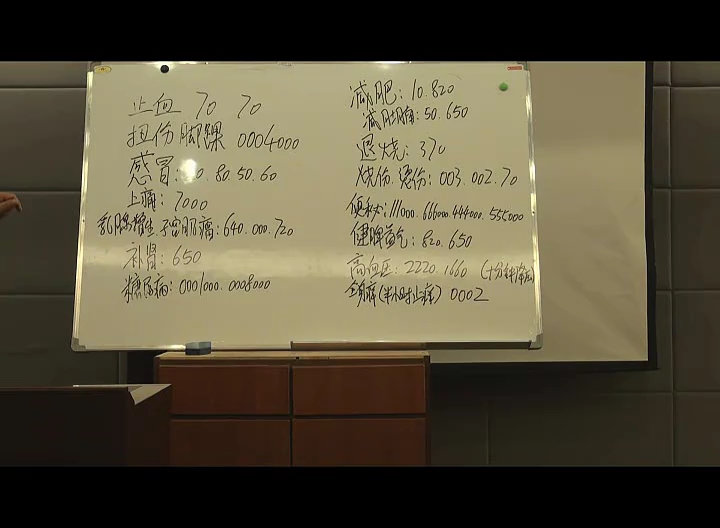 止血 70 70
扭伤脚踝 0004000
感冒: 0.80.50.60
止痛: 7000
乳腺增生 子宫肌瘤: 640.000.720
补肾: 650
糖尿病: 0001000.0008000
减肥: 10.820
减肚腩: 50.650
退烧: 370
烧伤.烫伤: 003.002.70
便秘: 111000.666000.444000.555000
健脾益气: 820.650
高血压: 2220.1660 (十分钟降压)
(半小时止痒) 0002